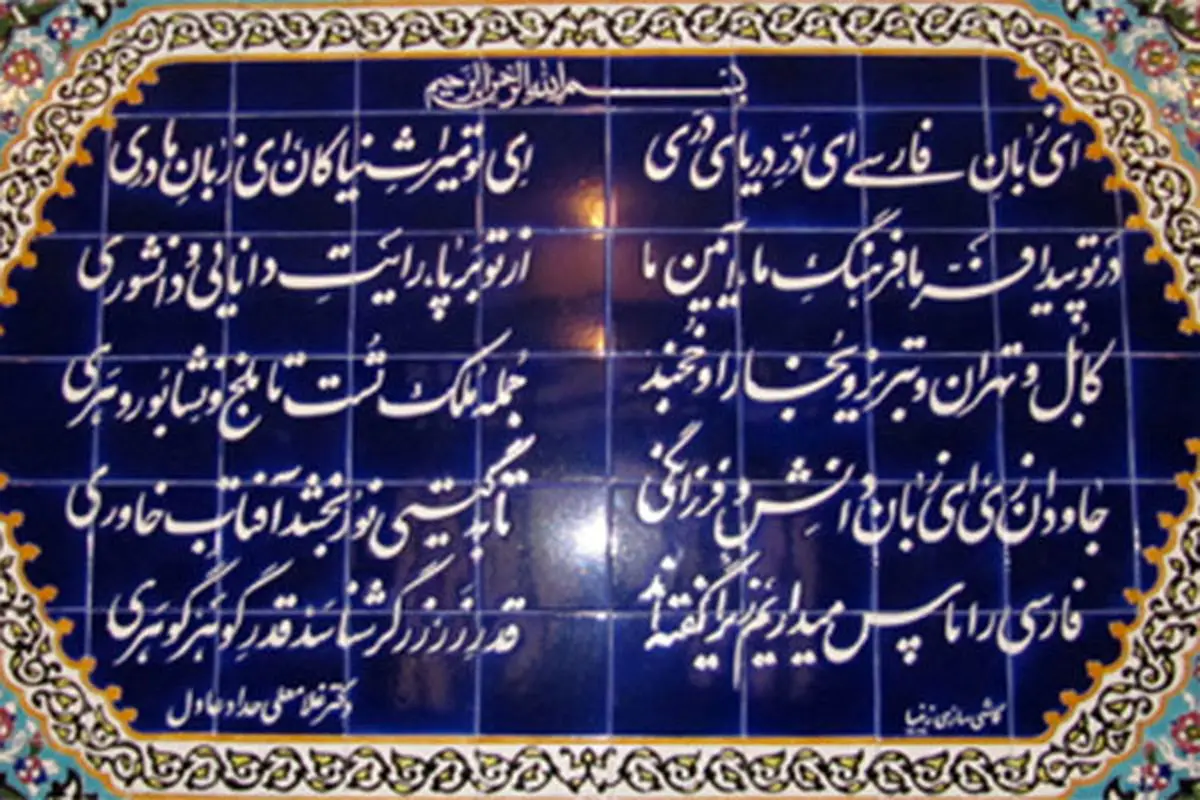 بسم الله الرحمن الرحیم
ای زبانِ فارسی ای دُرِّ دریای دَری ای تو میراث نیاکان ای زبانِ مادری
در تو پیدا فرِّ ما فرهنگِ ما آیین ما از تو بَر پا، رایَتِ دانایی و دانشوری
کابُل و تهران و تبریز و بُخارا و خُجَند جُمله مُلکِ تُست تا بلخ و نِشابُور و هَری
جاودان زی ای زبان دانِش و فرزانگی تا به گیتی نور بخشد آفتاب خاوری
فارسی را پاس میداریم زیرا گفته‌اند قدرِ زَر زرگر شناسَد قدرِ گوهر گوهَری
دکتر غلامعلی حداد عادل
کاشی سازی زیبا